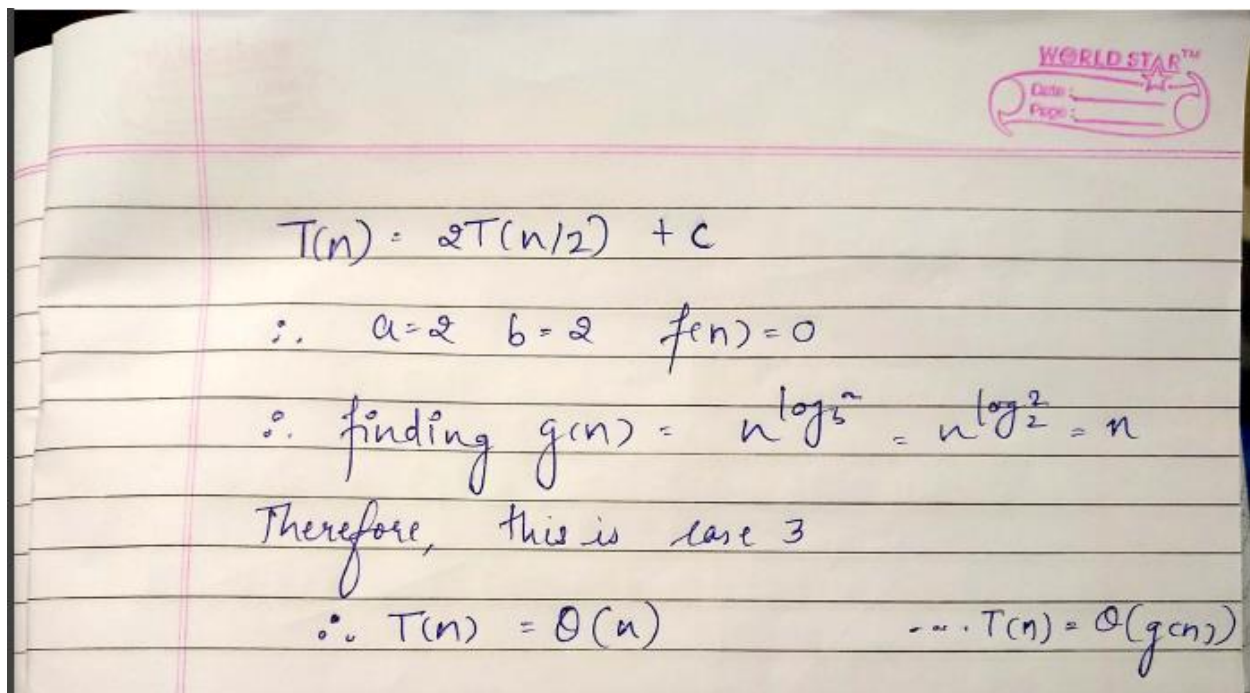 WORLD STAR™
Date :
Page :
T(n) = 2T(n/2) + c
∴ a=2 b=2 f(n)=0
∴ finding g(n) = n^log_b a = n^log_2 2 = n
Therefore, this is case 3
∴ T(n) = θ(n) .... T(n) = θ(g(n))